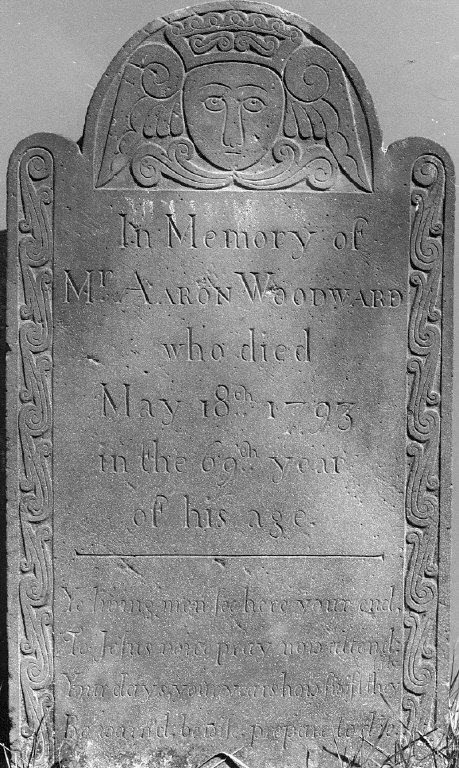 In Memory of
Mr. AARON WOODWARD
who died
May 18th. 1793
in the 69th. year
of his age.
Ye living men see here your end,
To Jesus voice pray now attend:
Your days, your years how swift they
Be warn'd, be wise, prepare to